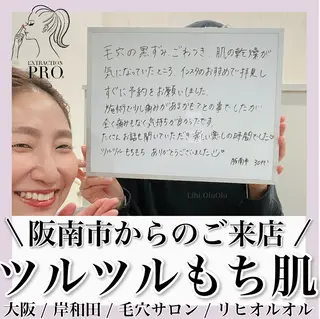 EXTRACTION
PRO.
毛穴の黒ずみ ごわつき 肌の乾燥が
気になっていたところ、インスタのお勧めで拝見し
すぐに予約をお願いしました。
施術で少し痛みがあるかもとの事でしたが
全く痛みもなく気持ちが良かったです。
たくさんお話も聞いていただき楽しい癒しの時間でした
ツルツル もちもち ありがとうございました
阪南市 30代
Lihi OluOlu
\ 阪南市からのご来店 /
ツルツルもち肌
大阪 / 岸和田 / 毛穴サロン / リヒオルオル